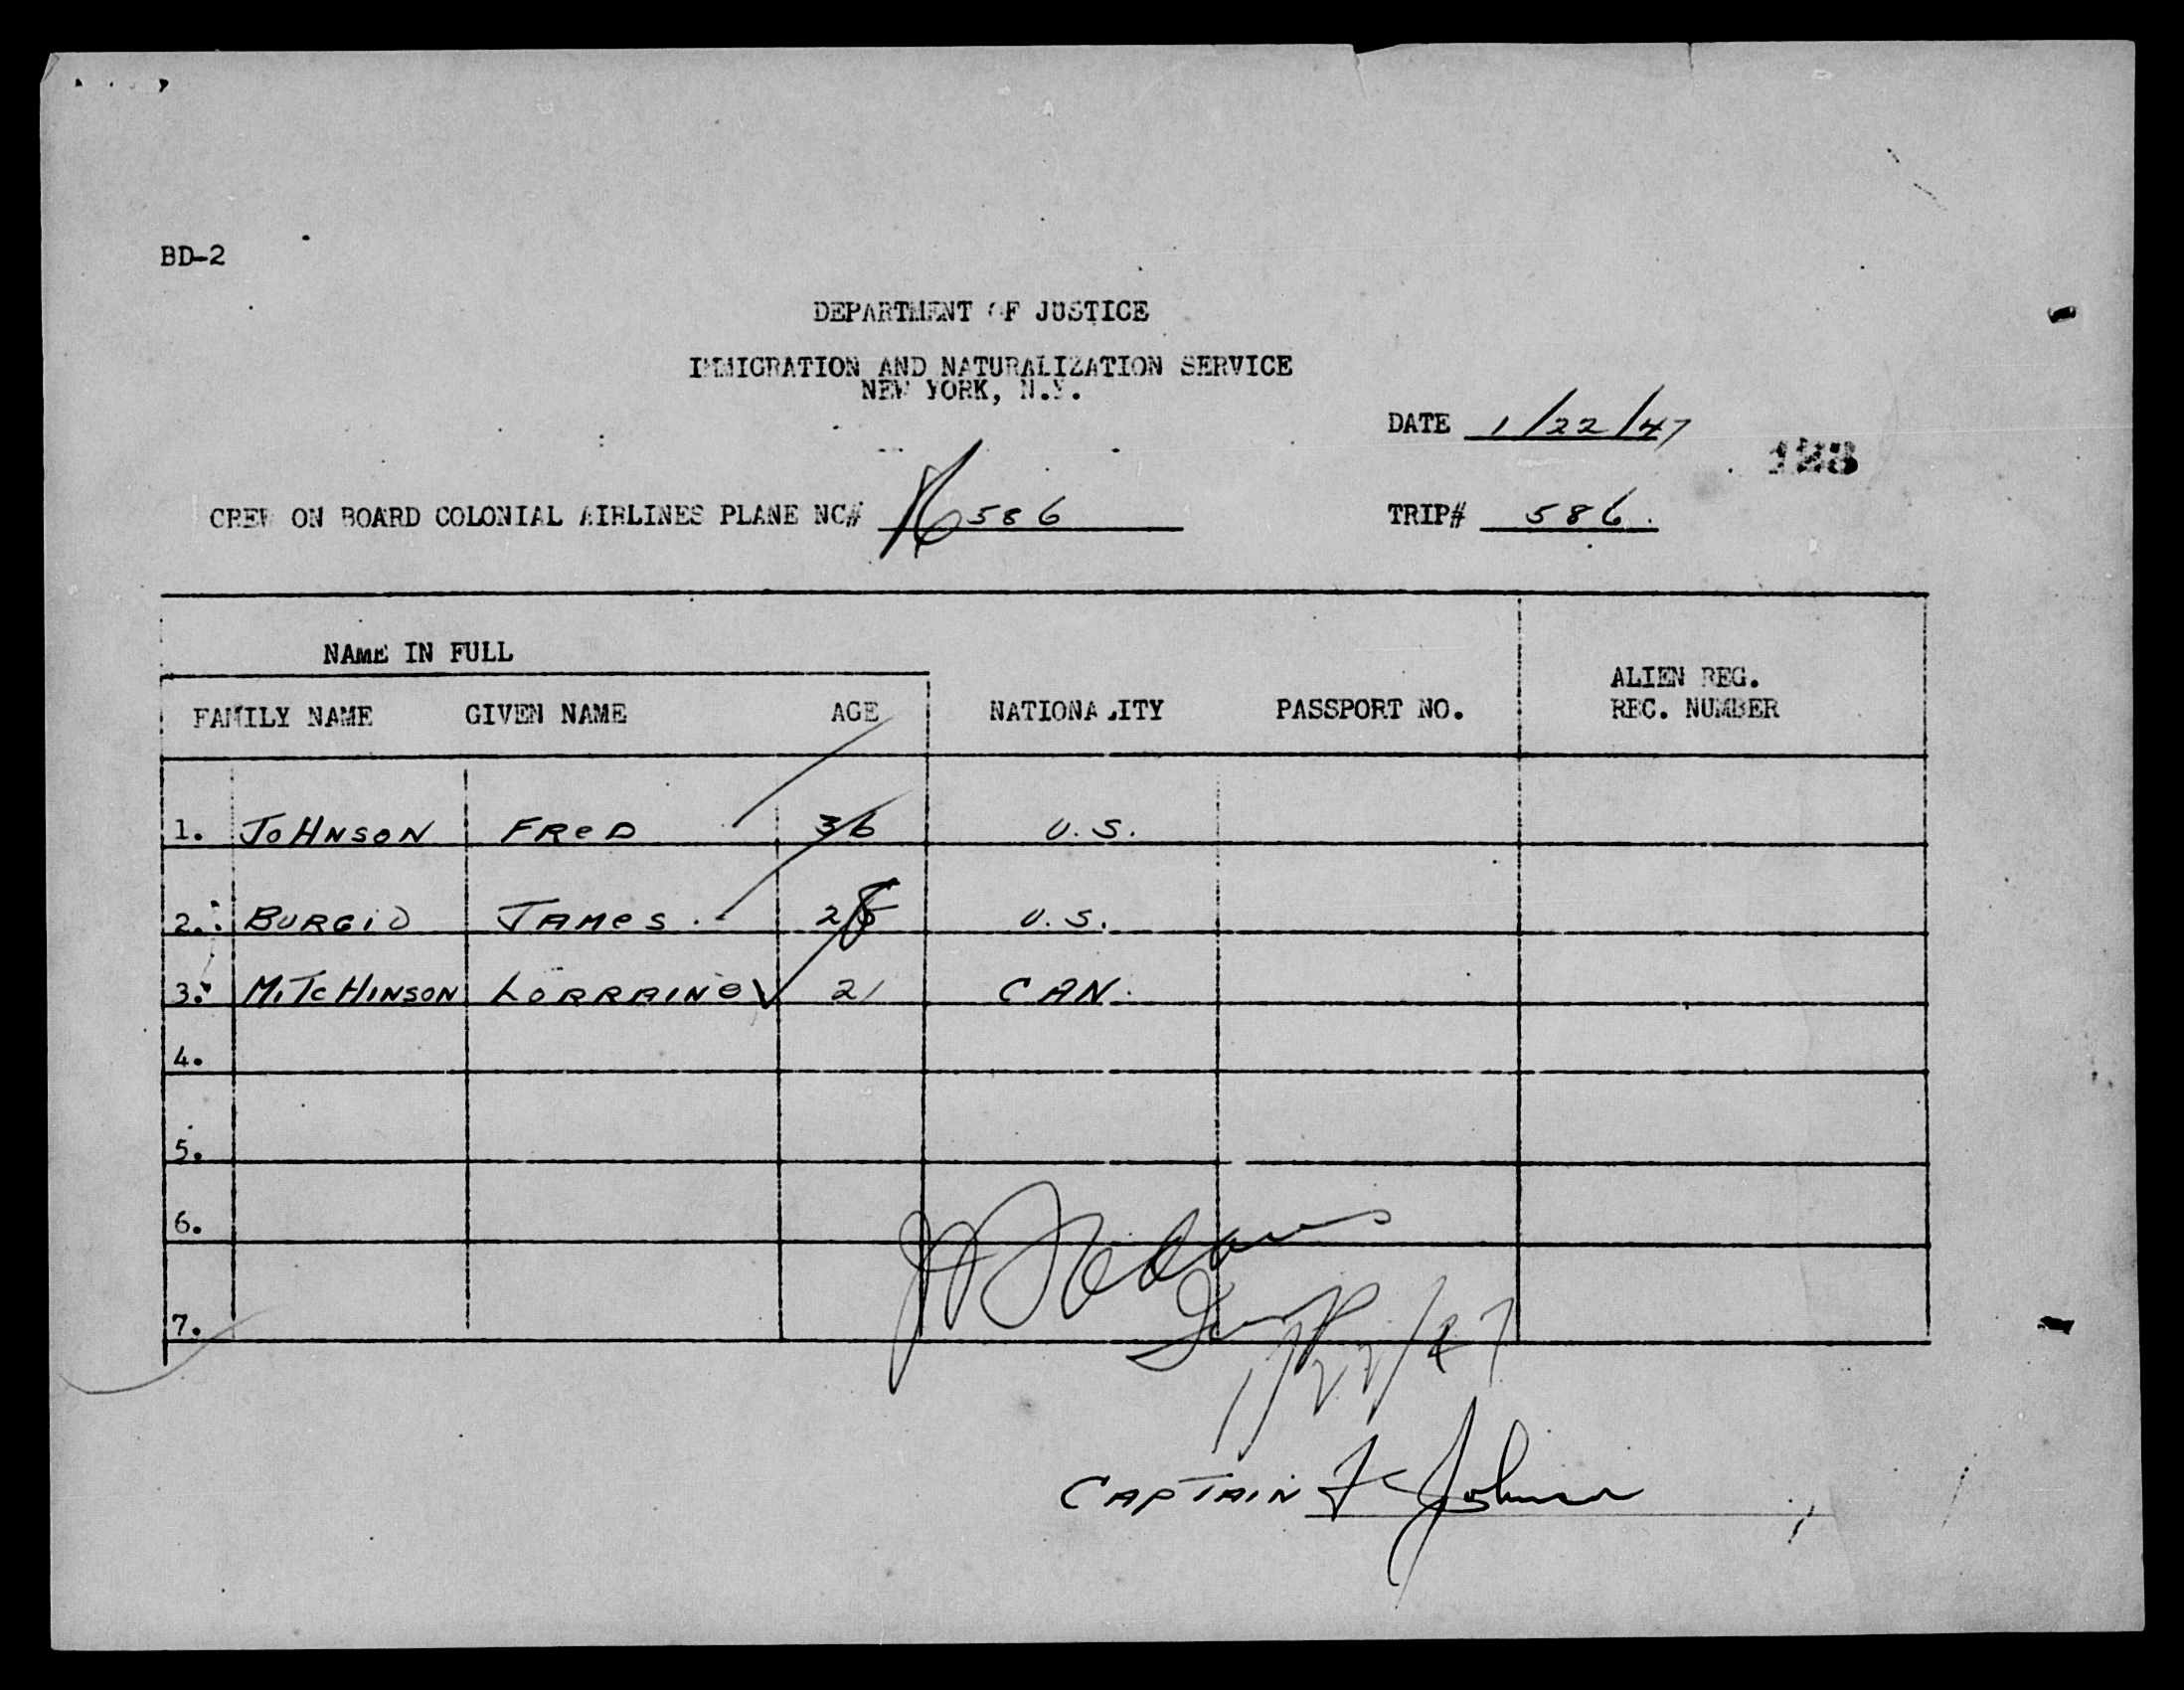 BD-2
DEPARTMENT OF JUSTICE
IMMIGRATION AND NATURALIZATION SERVICE
NEW YORK, N.Y.
DATE 1/22/47
123
CREW ON BOARD COLONIAL AIRLINES PLANE NC# 586
TRIP# 586.
NAME IN FULL
FAMILY NAME GIVEN NAME AGE NATIONALITY PASSPORT NO. ALIEN REG. REC. NUMBER
1. JOHNSON FRED 36 U.S.
2. BURGIO JAMES U.S.
3. MITCHINSON LORRAINE 21 CAN.
4.
5.
6.
7.
1/22/47
CAPTAIN F Johnson